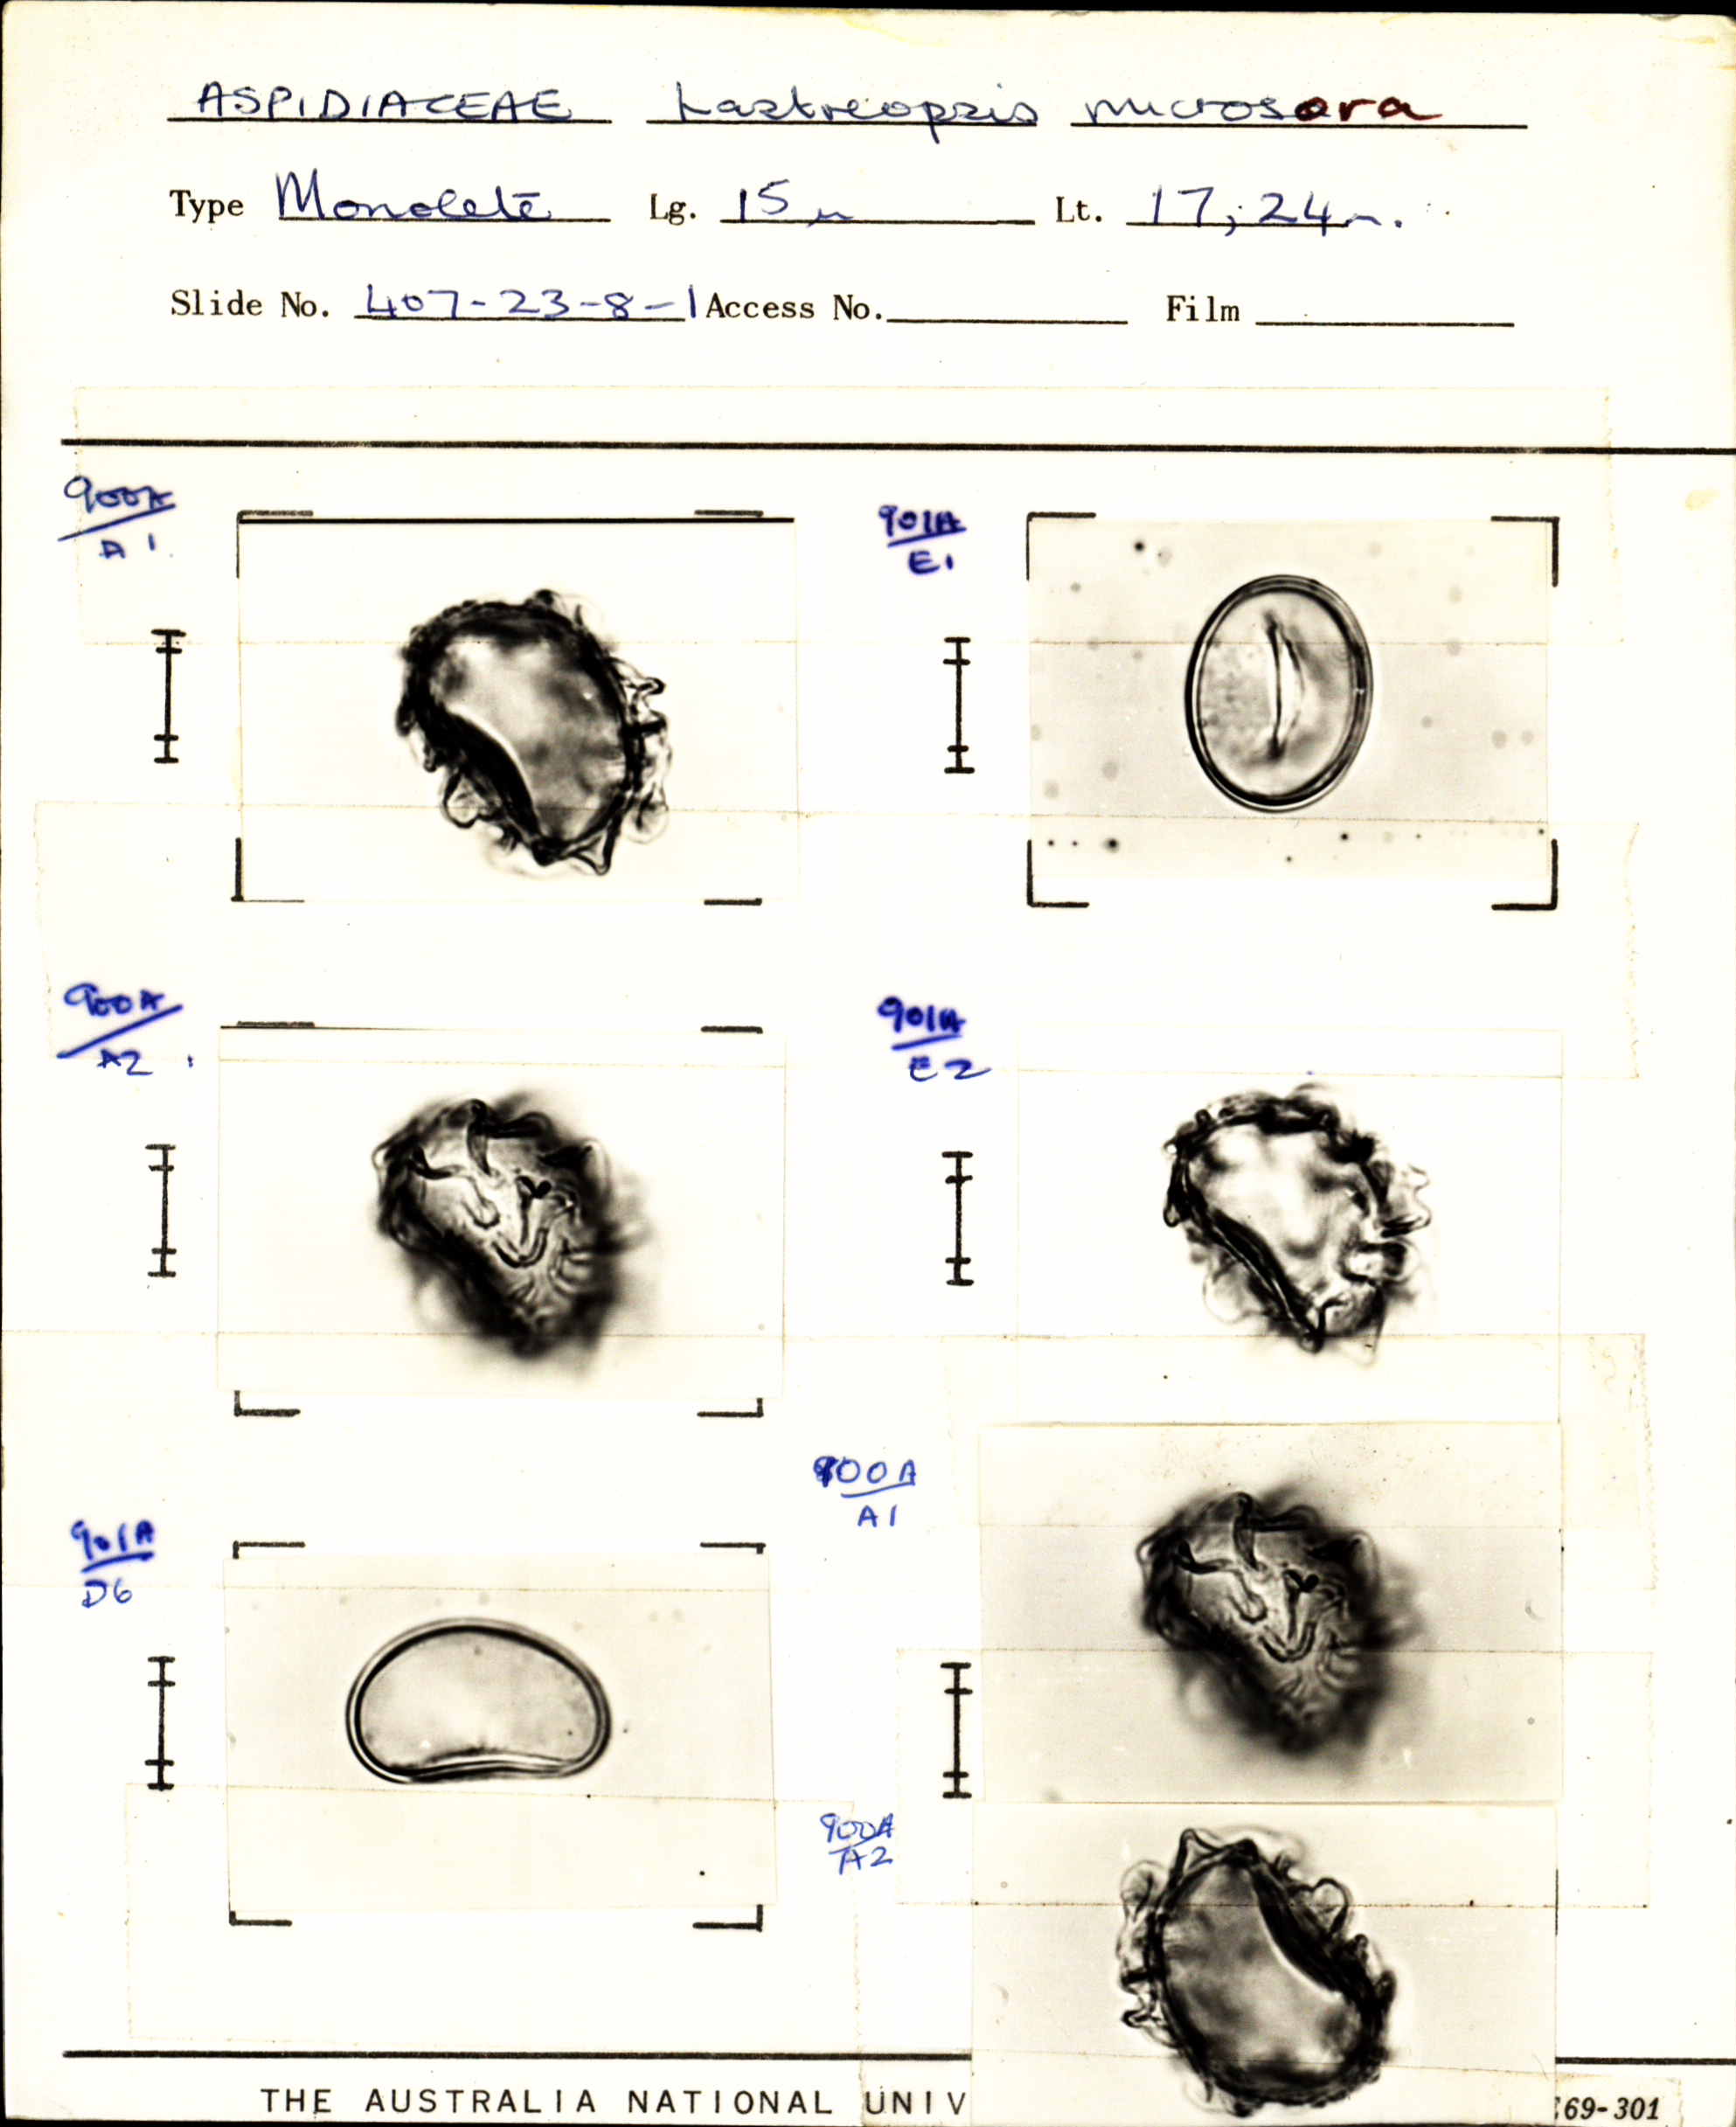 ASPIDIACEAE Lastreopsis microsora
Type Monolete Lg. 15μ Lt. 17; 24μ.
Slide No. 407-23-8-1 Access No. Film
900A
A1
901A
E1
900A
A2
901A
E2
900A
A1
901A
D6
900A
A2
THE AUSTRALIA NATIONAL UNIV 69-301